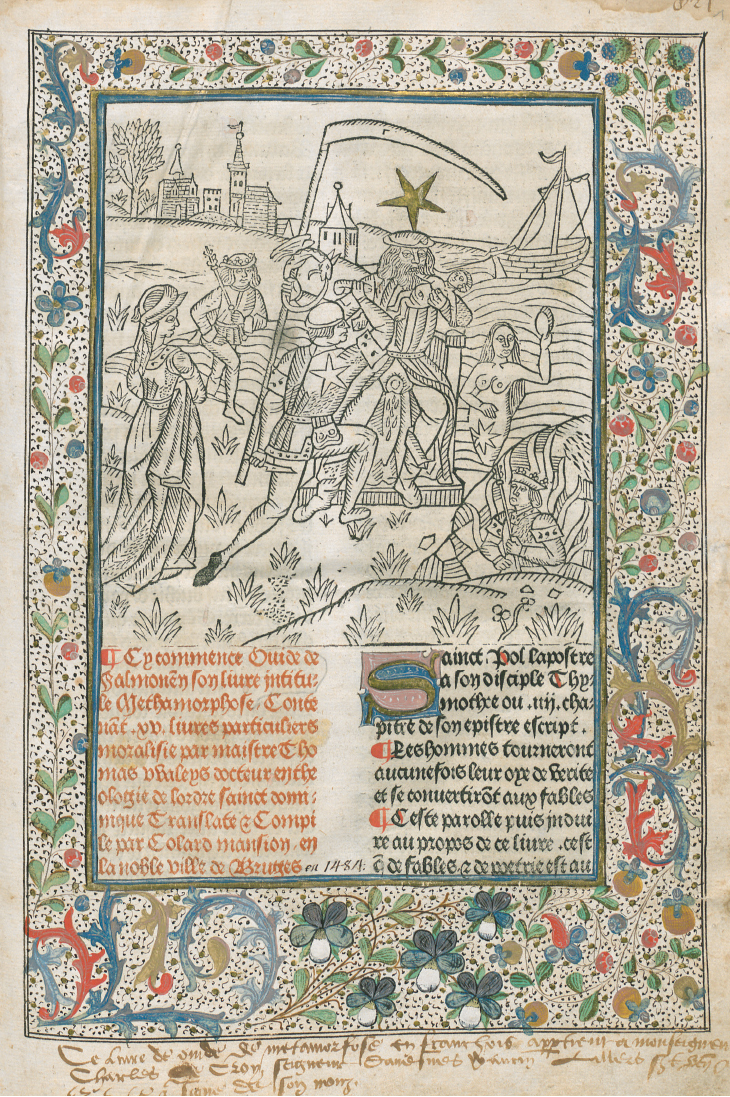 ¶ Cy commence Ouide de
Salmonen son liure intitu-
le Methamorphose. Conte
nāt .xv. liures particuliers
moralisie par maistre Tho
mas vvaleys docteur en the
ologie de lordre sainct domi-
nique Translate & Compi
le par Colard mansion en
la noble ville de Bruges en 1484.
Sainct Pol lapostre
a son disciple Thy
mothee ou .iiij. cha-
pitre de son epistre escript.
¶ Les hommes tourneront
aucunefois leur oye de Verite
et se convertirōt aux fables
¶ Ceste parolle puis indui
re au propos de ce liure. cest
q̄ de fables & de poetrie est au
Ce liure de ouide de metamorfose en franchois appertient a monseigneur
Charles de Croy seigneur
de son nom.